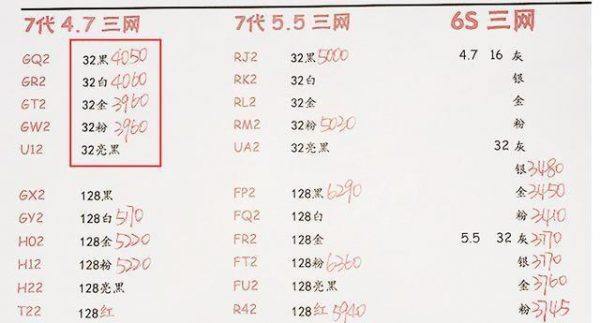 7代 4.7 三网 7代 5.5 三网 6S 三网
GQ2 32黑 4050 RJ2 32黑 5000 4.7 16 灰
GR2 32白 4060 RK2 32白 银
GT2 32金 3960 RL2 32金 金
GW2 32粉 3960 RM2 32粉 5030 粉
U12 32亮黑 UA2 32亮黑 32 灰
银 3480
GX2 128黑 FP2 128黑 6290 金 3450
GY2 128白 5170 FQ2 128白 粉 3410
H02 128金 5220 FR2 128金 5.5 32 灰 3770
H12 128粉 5220 FT2 128粉 6360 银 3770
H22 128亮黑 FU2 128亮黑 金 3760
T22 128红 R42 128红 5940 粉 3745